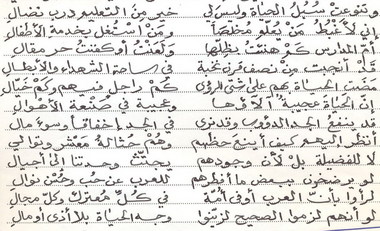 وتنوعت سُبُلُ الحياةِ وليس لي خيرٌ من التعليمِ دربَ نضالِ
إني لأغبطُ مَنْ يُعلِّمُ مخلصًا ومَنْ استُغلَّ بخدمةِ الأطفالِ
أمَّ المدارس كم هنئتُ بظلِّها ولَعنتُ أو كفنتُ حرَّ مقالِ
قَدْ أنجبت من نصفِ قرنٍ نخبةً في ساحةِ الشهداءِ والأبطالِ
مضت الحياةُ بهم على شتى الرؤى كم راجلٍ منهم وكم خيَّالِ
إنَّ الحياةَ عجيبةٌ وعجيبة في صنعة الأهوالِ
قد ينفعُ الجدُّ الدؤوب وقد نرى في الجدِّ إخفاقًا وسوءَ مآلِ
أنظر إليهم كيف أينع حظهم وهُمُ حثالةُ معشرٍ وتوالي
لا للفضيلة بل لأن وجودهم يجتثُّ وحدتنا إلى أجيالِ
لو يرضخون ببعض ما أنظرهم للعرب عن حبٍّ وحُسْنِ نوالِ
لرأوا بأنَّ العربَ أوفى أمَّةٍ في كلِّ معتركٍ وكلِّ مجالِ
لو أنهم لزموا الصحيح لزيَّنوا وجه الحياة بلا أذى أو مالِ